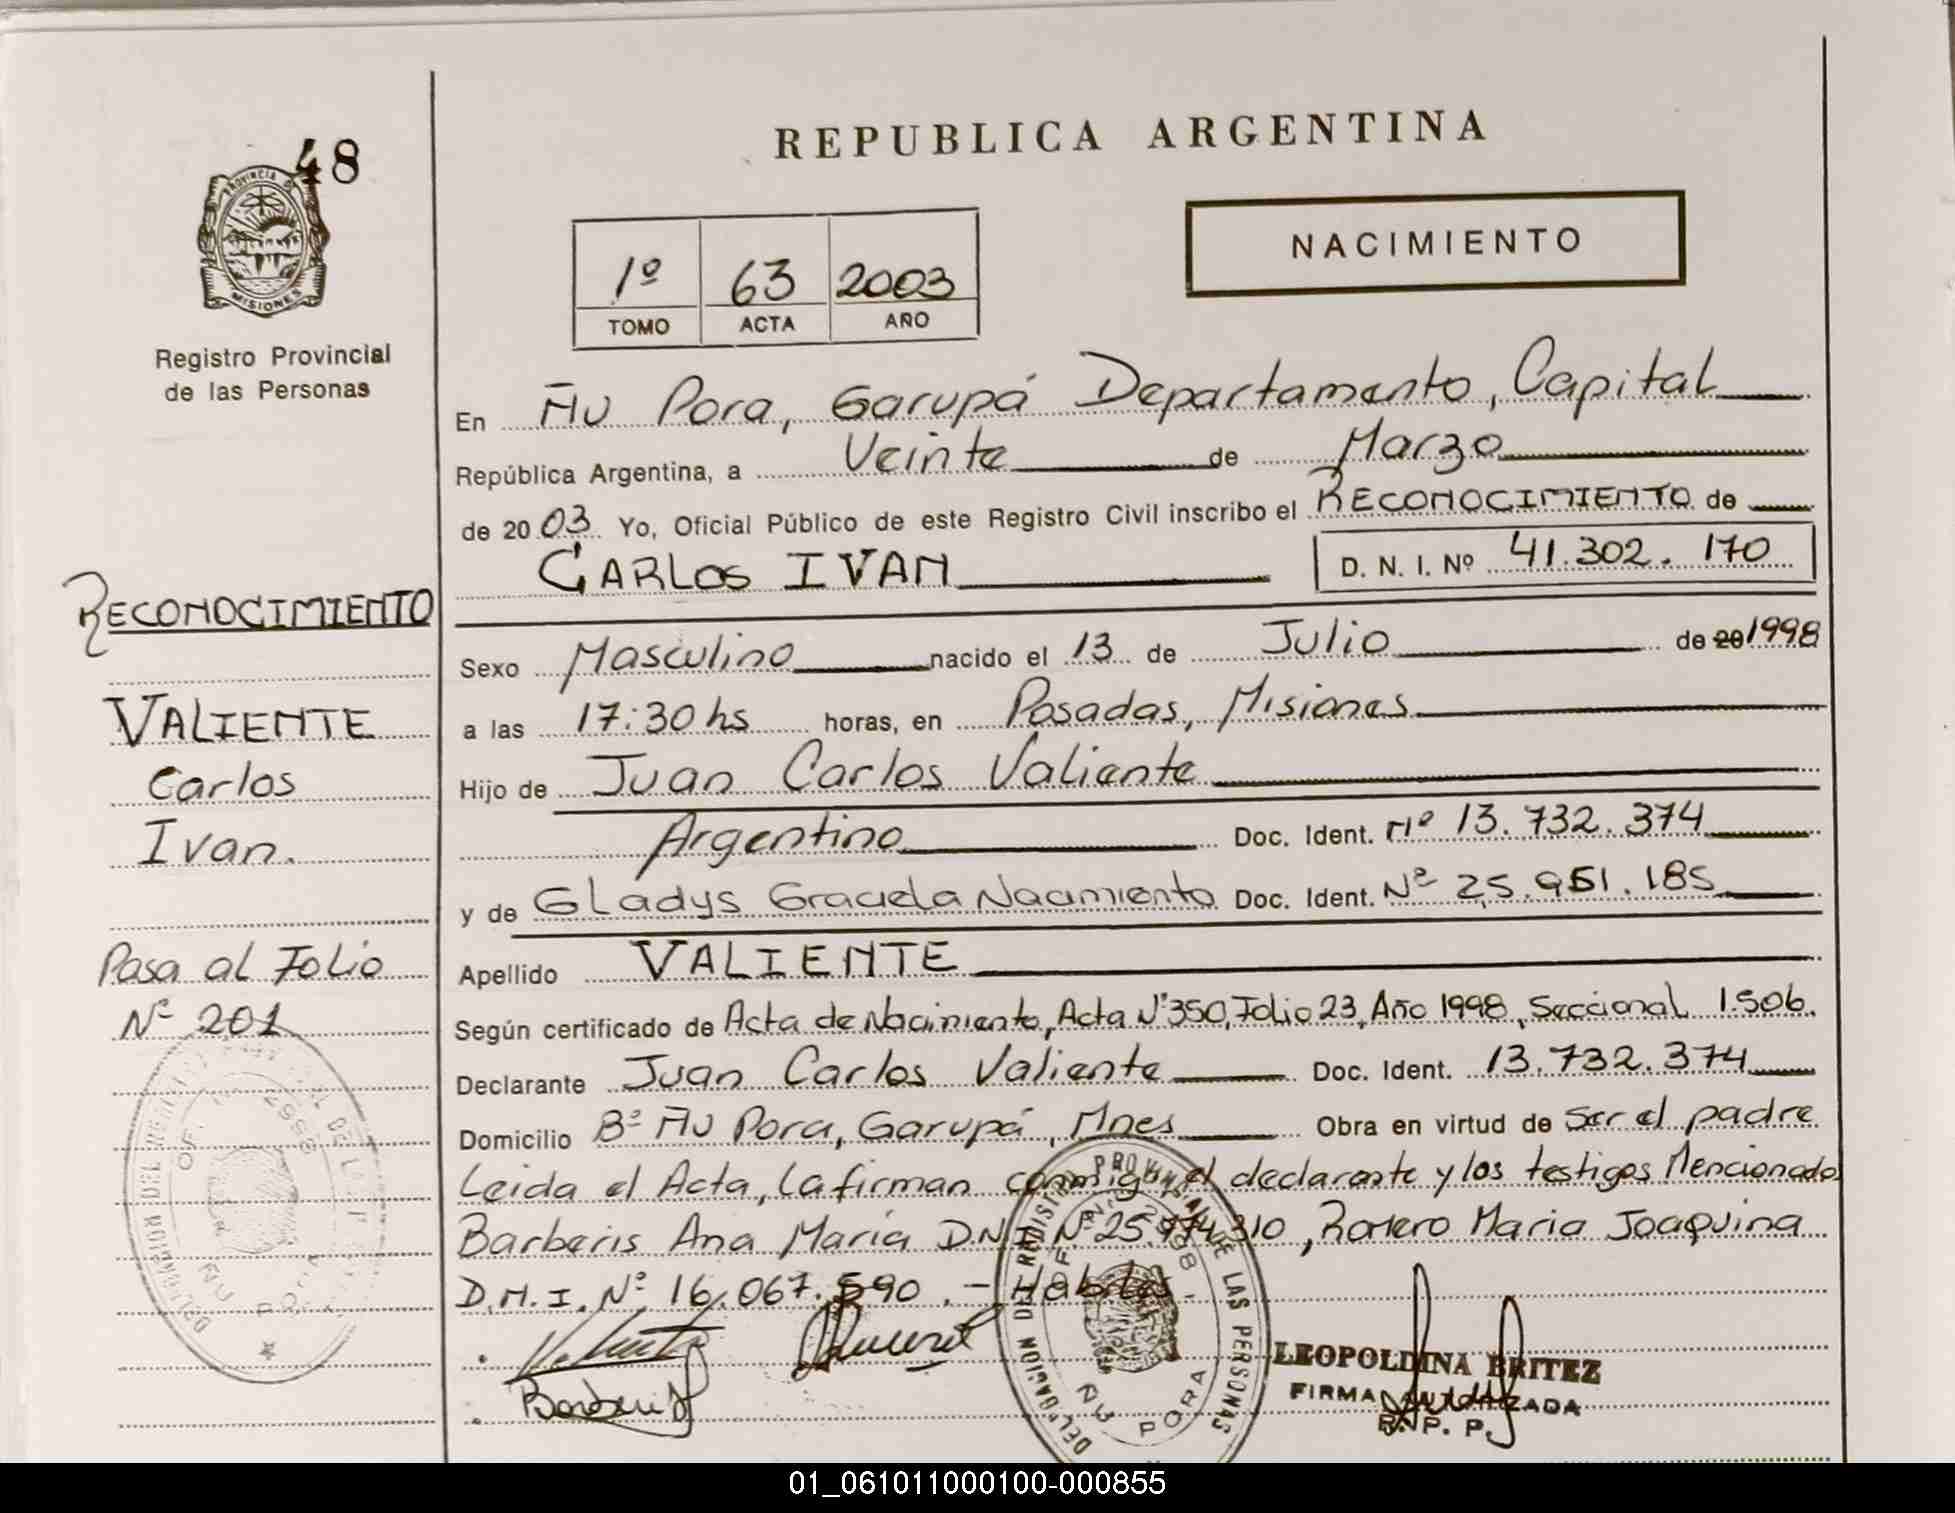 48
PROVINCIA DE
MISIONES
Registro Provincial
de las Personas
RECONOCIMIENTO
VALIENTE
Carlos
Ivan.
Pasa al Folio
Nº 201
REPUBLICA ARGENTINA
NACIMIENTO
1º 63 2003
TOMO ACTA AÑO
En Ñu Pora, Garupá Departamento, Capital
República Argentina, a Veinte de Marzo
de 2003 Yo, Oficial Público de este Registro Civil inscribo el RECONOCIMIENTO de
CARLOS IVAN D. N. I. Nº 41.302.170
Sexo Masculino nacido el 13 de Julio de 20 1998
a las 17:30 hs horas, en Posadas, Misiones
Hijo de Juan Carlos Valiente
Argentino Doc. Ident. Nº 13.732.374
y de Gladys Graciela Nacimiento Doc. Ident. Nº 25.951.185
Apellido VALIENTE
Según certificado de Acta de Nacimiento, Acta Nº 350, Folio 23, Año 1998, Seccional 1.506.
Declarante Juan Carlos Valiente Doc. Ident. 13.732.374
Domicilio Bº Ñu Pora, Garupá, Mnes Obra en virtud de ser el padre
Leida el Acta, la firman conmigo, el declarante y los testigos Mencionados
Barberis Ana María D.N.I. Nº 25.974.310, Romero Maria Joaquina
D.N.I. Nº 16.067.590. - Habiles -
DELEGACION DEL REGISTRO PROVINCIAL DE LAS PERSONAS
ÑU PORA
LEOPOLDINA BRITEZ
FIRMA AUTORIZADA
R. P. P.
01_061011000100-000855